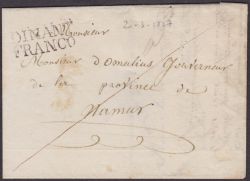 DINANT
FRANCO
Monsieur
Monsieur d'omalius Gouverneur
de la province de
Namur